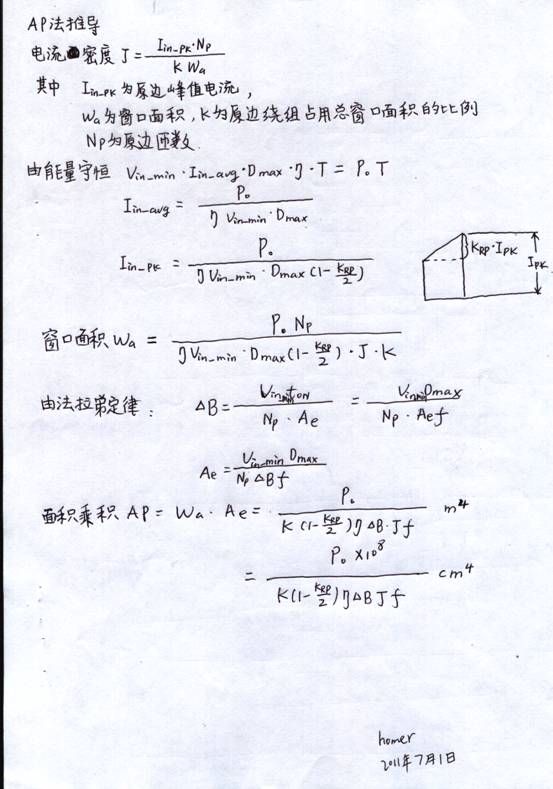 AP法推导
电流密度 J = Iin_pk·Np / K Wa
其中 Iin_pk为原边峰值电流,
Wa为窗口面积, K为原边绕组占用总窗口面积的比例
Np为原边匝数.
由能量守恒 Vin_min · Iin_avg · Dmax · η · T = Po T
Iin_avg = Po / η Vin_min · Dmax
Iin_pk = Po / η Vin_min · Dmax (1 - KRP/2)
KRP·IPK
IPK
窗口面积 Wa = Po Np / η Vin_min · Dmax (1 - KRP/2) · J · K
由法拉第定律: ΔB = Vin_min ton / Np · Ae = Vin_min Dmax / Np · Ae f
Ae = Vin_min Dmax / Np ΔB f
面积乘积 AP = Wa · Ae = Po / K (1 - KRP/2) η ΔB · J f m⁴
= Po ×10⁸ / K (1 - KRP/2) η ΔB J f cm⁴
homer
2011年7月1日